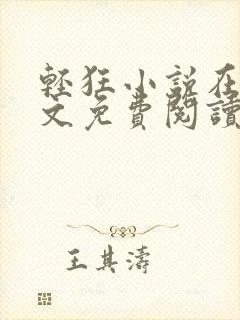 輕狂小説在
文免費閱讀
王其濤